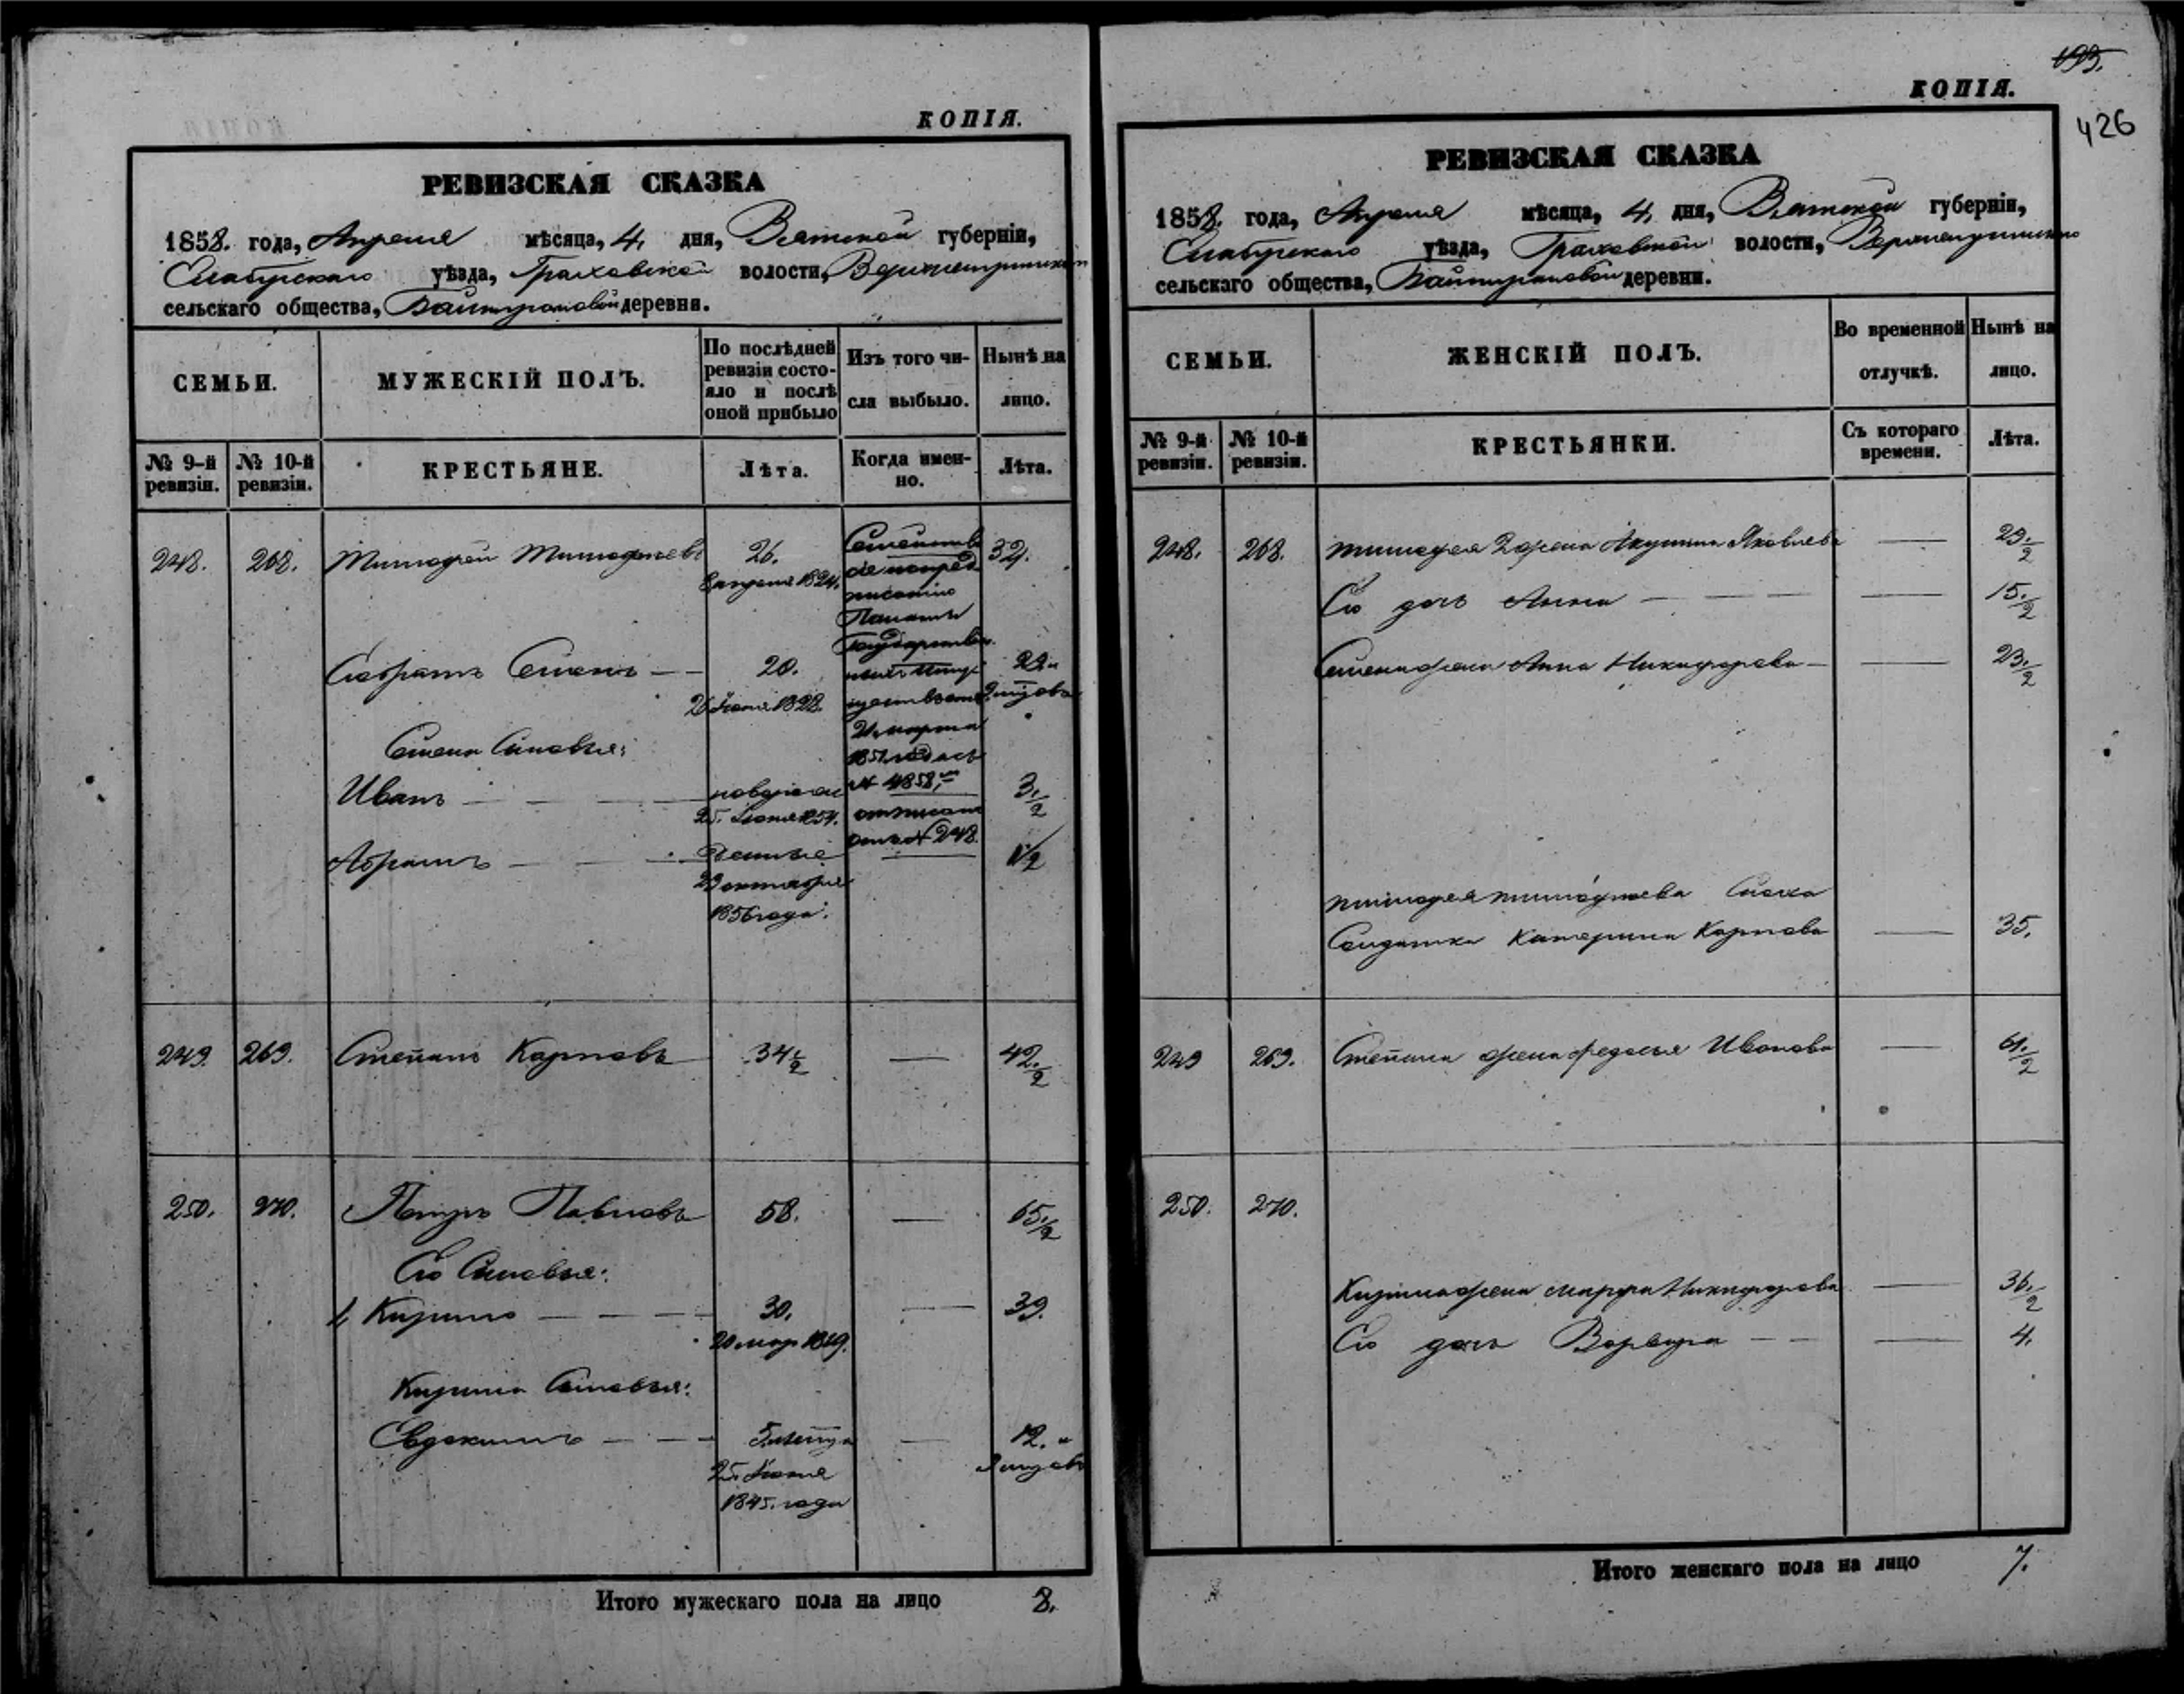 КОПІЯ.
РЕВИЗСКАЯ СКАЗКА
1858. года, Апреля мѣсяца, 4, дня, Вятской губерніи,
Елабужскаго уѣзда, Граховской волости,
сельскаго общества, Байтурановой деревни.
СЕМЬИ.
МУЖЕСКІЙ ПОЛЪ.
По послѣдней ревизіи состо-
яло и послѣ оной прибыло
Изъ того чи-
сла выбыло.
Нынѣ на
лицо.
№ 9-й ревизіи.
№ 10-й ревизіи.
КРЕСТЬЯНЕ.
Лѣта.
Когда имен-
но.
Лѣта.
248. 268. Тимофей Тимофеевъ 26. 32.
Его братъ Семенъ 20. 22 и
26 Іюня 1828.
Семена Сыновья:
Иванъ 3 1/2
25. Іюня 1854.
Абрамъ 1 1/2
29 октября
1856 года.
Семейство
Палаты
21 марта
№ 4858,
отъ № 248.
249. 269. Степанъ Карповъ 34 1/2 — 42 1/2
250. 270. Петръ Павловъ 58. — 65 1/2
Его Сыновья:
1, Кирило 30. — 39.
20 мар 1849.
Кирила Сыновья:
Евдокимъ 5 — 12. и
25 Іюня
1845. года
Итого мужескаго пола на лицо 8.
193.
КОПІЯ.
426
РЕВИЗСКАЯ СКАЗКА
1858. года, Апреля мѣсяца, 4, дня, Вятской губерніи,
Елабужскаго уѣзда, Граховской волости,
сельскаго общества, Байтурановой деревни.
СЕМЬИ.
ЖЕНСКІЙ ПОЛЪ.
Во временной
отлучкѣ.
Нынѣ на
лицо.
№ 9-й ревизіи.
№ 10-й ревизіи.
КРЕСТЬЯНКИ.
Съ котораго времени.
Лѣта.
248. 268. Тимофея жена Акулина Яковлева — 29 1/2
Его дочь Анна — 15 1/2
Семена жена Анна Никифорова — 23 1/2
Тимофея Тимофеева Сноха
Солдатка Катерина Карпова — 35.
249 269. Степана жена Федосья Иванова — 61 1/2
250. 270.
Кирила жена Марфа Никифорова — 36 1/2
Его дочь Варвара — 4.
Итого женскаго пола на лицо 7.